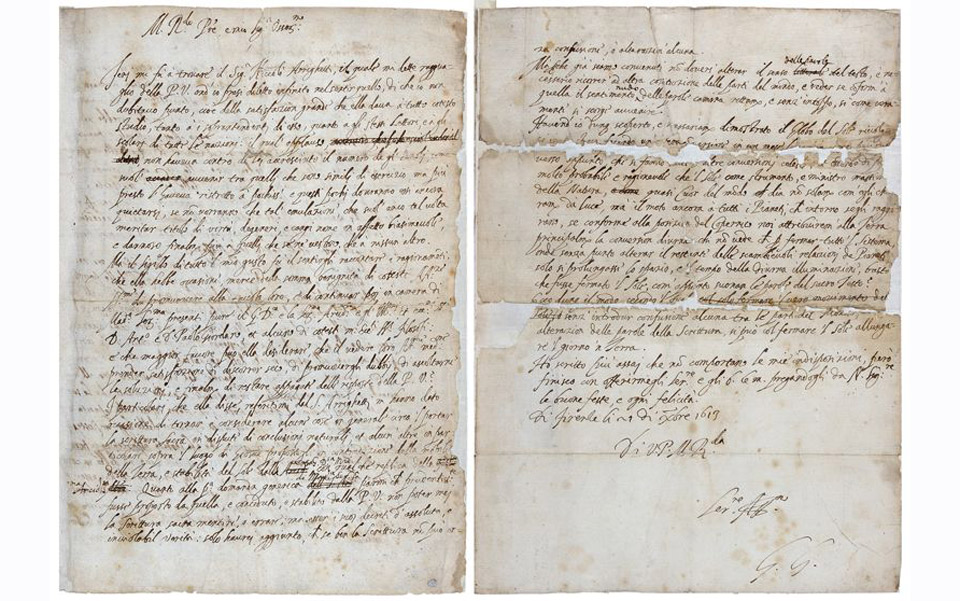 M. R.do P're e mio Sig.r Oss.mo
Ieri mi fu a trovare il Sig. Niccolò Arrighetti, il quale mi dette raggua-
glio della P. V. ond'io presi diletto infinito nel sentir quello di che io non
dubitavo punto, cioè della satisfazion grande che ella dava a tutto cotesto
Studio, tanto a i soprintendenti di esso, quanto a gli stessi lettori, e a gli
scolari di tutte le nazioni: il qual applauso
non haveva contro di lei accresciuto il numero de gli emoli, come
suol avvenir tra quelli che sono simili di esercizio, ma più
presto l'haveva ristretto a pochissimi; e questi pochi dovranno essi ancora
quietarsi, se non vorranno che tale emulazione, che suol anco tal volta
meritar titolo di virtù, degeneri, e cangi nome in affetto biasimevole
e dannoso finalmente più a quelli che se ne vestono, che a nissun altro.
Ma il sigillo di tutto il mio gusto fu il sentirgli raccontar i ragionamenti
che ella hebbe occasione, mercé della somma benignità di coteste Altezze
di promuovere alla tavola loro, e di continuar poi in camera di
Mad.ma Ser.ma presenti pure il G. D. e la Ser.ma Arcid.
D. Ant.o e D. Paolo Giordano, et alcuni di cotesti molto
e che maggior favore può ella desiderare, che il vedere loro Altezze medesime
prender satisfazione di discorrer seco, di promuovergli dubbii, di ascoltarne
le soluzioni, e finalmente di restar appagate delle risposte della P. V.
I particolari che ella disse, referitimi dal S. Arrighetti, mi hanno dato
occasione di tornar a considerare alcune cose in generale circa 'l portar
la scrittura sacra in dispute di conclusioni naturali, et alcun'altre in par-
ticolare sopra 'l luogo di Giosuè propostoli, in contradizione della mobilità
della Terra, e stabilità del Sole dalla
Arcid.sa Quanto alla p.a domanda generica parmi che prudentissimamente
fusse proposto da quella, e conceduto, e stabilito dalla P. V. non poter mai
la Scrittura sacra mentire, o errare, ma essere i suoi decreti d'assoluta, e
inviolabil verità: solo haurei aggiunto, che se ben la Scrittura non può er-
na confusione, o alterazion alcuna.
Ma se che già siamo convenuti, non doversi alterar il senso delle parole del testo, è ne-
cessario ricorrer ad altra costituzione delle parti del mondo, e veder se conforme a
quella il sentimento nudo delle parole cammina rettamente, e senza intoppo, sì come vera-
mente si scorge avvenire.
Havend'io dunque scoperto, e necessariamente dimostrato il globo del Sole rivolgersi
molto probabile e ragionevole che 'l Sole, come strumento, e ministro massimo
della Natura, quasi cuor del mondo, dia non solamente, com'egli chia-
ramente dà, luce, ma il moto ancora a tutti i Pianeti, che intorno se gli raggi-
rano; se conforme alla posizion del Copernico noi attribuirem alla Terra
principalmente la conversion diurna; chi non vede che per fermar tutto il Sistema,
onde senza punto alterar il restante delle scambievoli relazioni de Pianeti,
solo si prolungassi lo spazio, e 'l tempo della diurna illuminazione, bastò
che fusse fermato 'l Sole, com'appunto suonan le parole del sacro Testo?
senza introdur confusione alcuna tra le parti del Mondo e senza
alterazion delle parole della Scrittura, si può col fermare 'l Sole allunga-
re 'l giorno in Terra.
Ho scritto più assai che non comportano le mie indisposizioni, però
finisco, con offerirmegli Ser.re e gli b. le m. pregandogli da N. Sig.re
le buone feste, e ogni felicità.
Di Firenze li 21 di Xbre 1613
Di V. P. M. R.da
Ser.re Aff.mo
G. G.